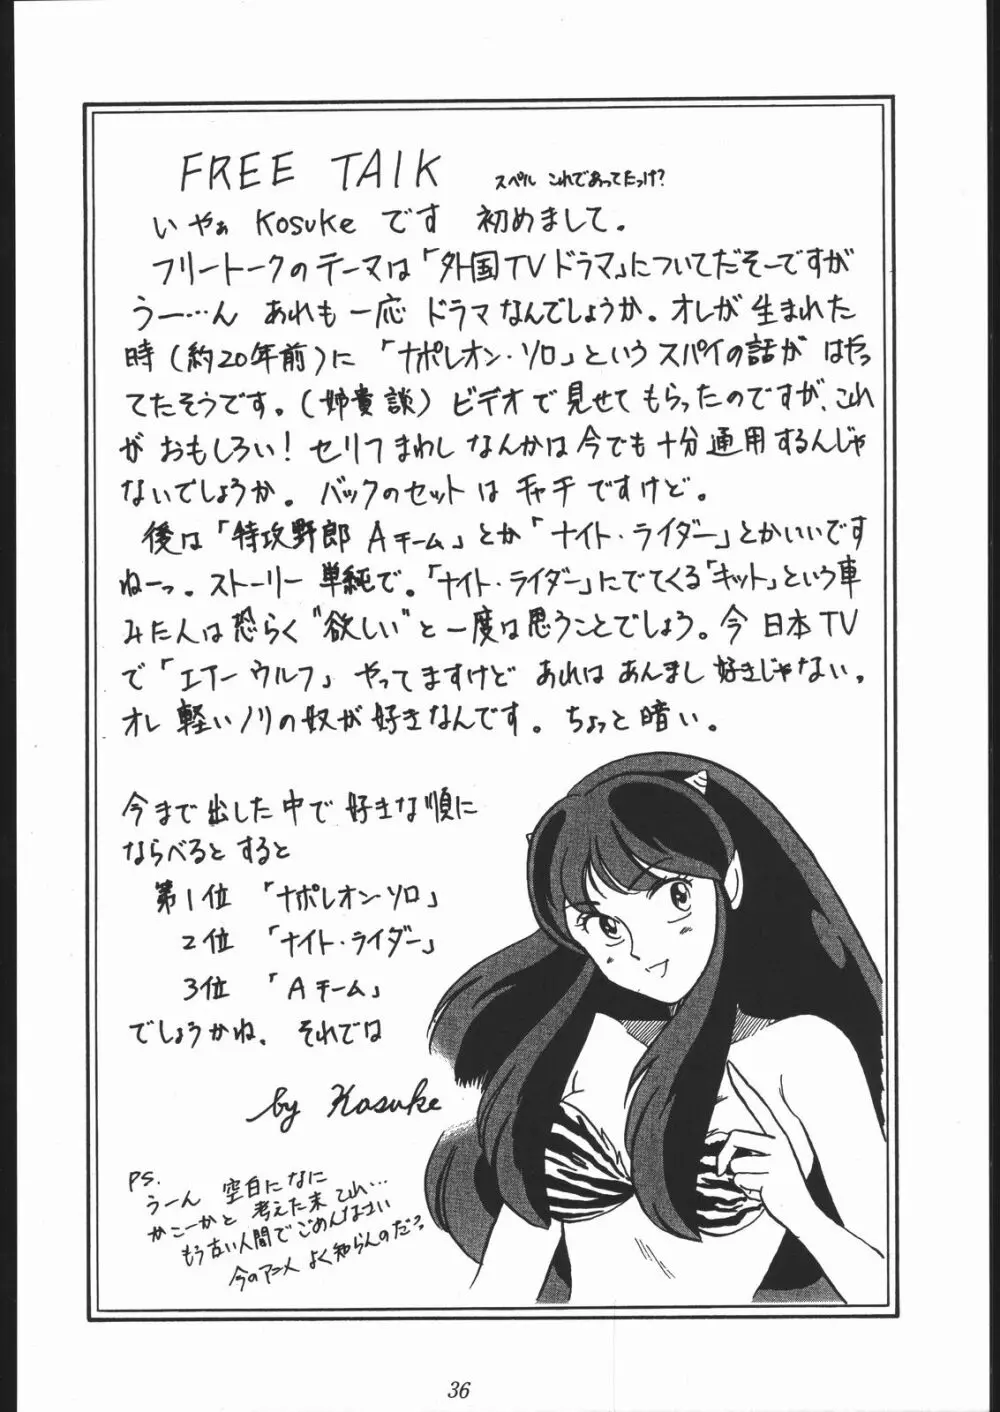 FREE TAlK スペル これであってたっけ?
いやぁ Kosuke です 初めまして。
フリートークのテーマは「外国TVドラマ」についてだそーですが
うー…ん あれも一応 ドラマなんでしょうか。オレが生まれた
時(約20年前)に 「ナポレオン・ソロ」という スパイの話が はやっ
てたそうです。(姉貴談) ビデオで見せてもらったのですが、これ
が おもしろい! セリフまわし なんかは 今でも 十分 通用するんじゃ
ないでしょうか。 バックのセットは チャチ ですけど。
後は「特攻野郎 Aチーム」とか「ナイト・ライダー」とかいいです
ねーっ。ストーリー 単純で。「ナイト・ライダー」にでてくる「キット」という車
みた人は恐らく"欲しい"と一度は思うことでしょう。今 日本TV
で「エアーウルフ」 やってますけど あれは あんまし 好きじゃない。
オレ 軽いノリの奴が好きなんです。ちょっと暗い。
今まで出した中で 好きな順に
ならべると すると
第1位 「ナポレオン・ソロ」
2位 「ナイト・ライダー」
3位 「Aチーム」
でしょうかね。 それでは
by Kosuke
PS.
うーん 空白になに
かこーかと 考えた末 これ…
もう古い人間でごめんなさい
今のアニメ よく知らんのだ?
36